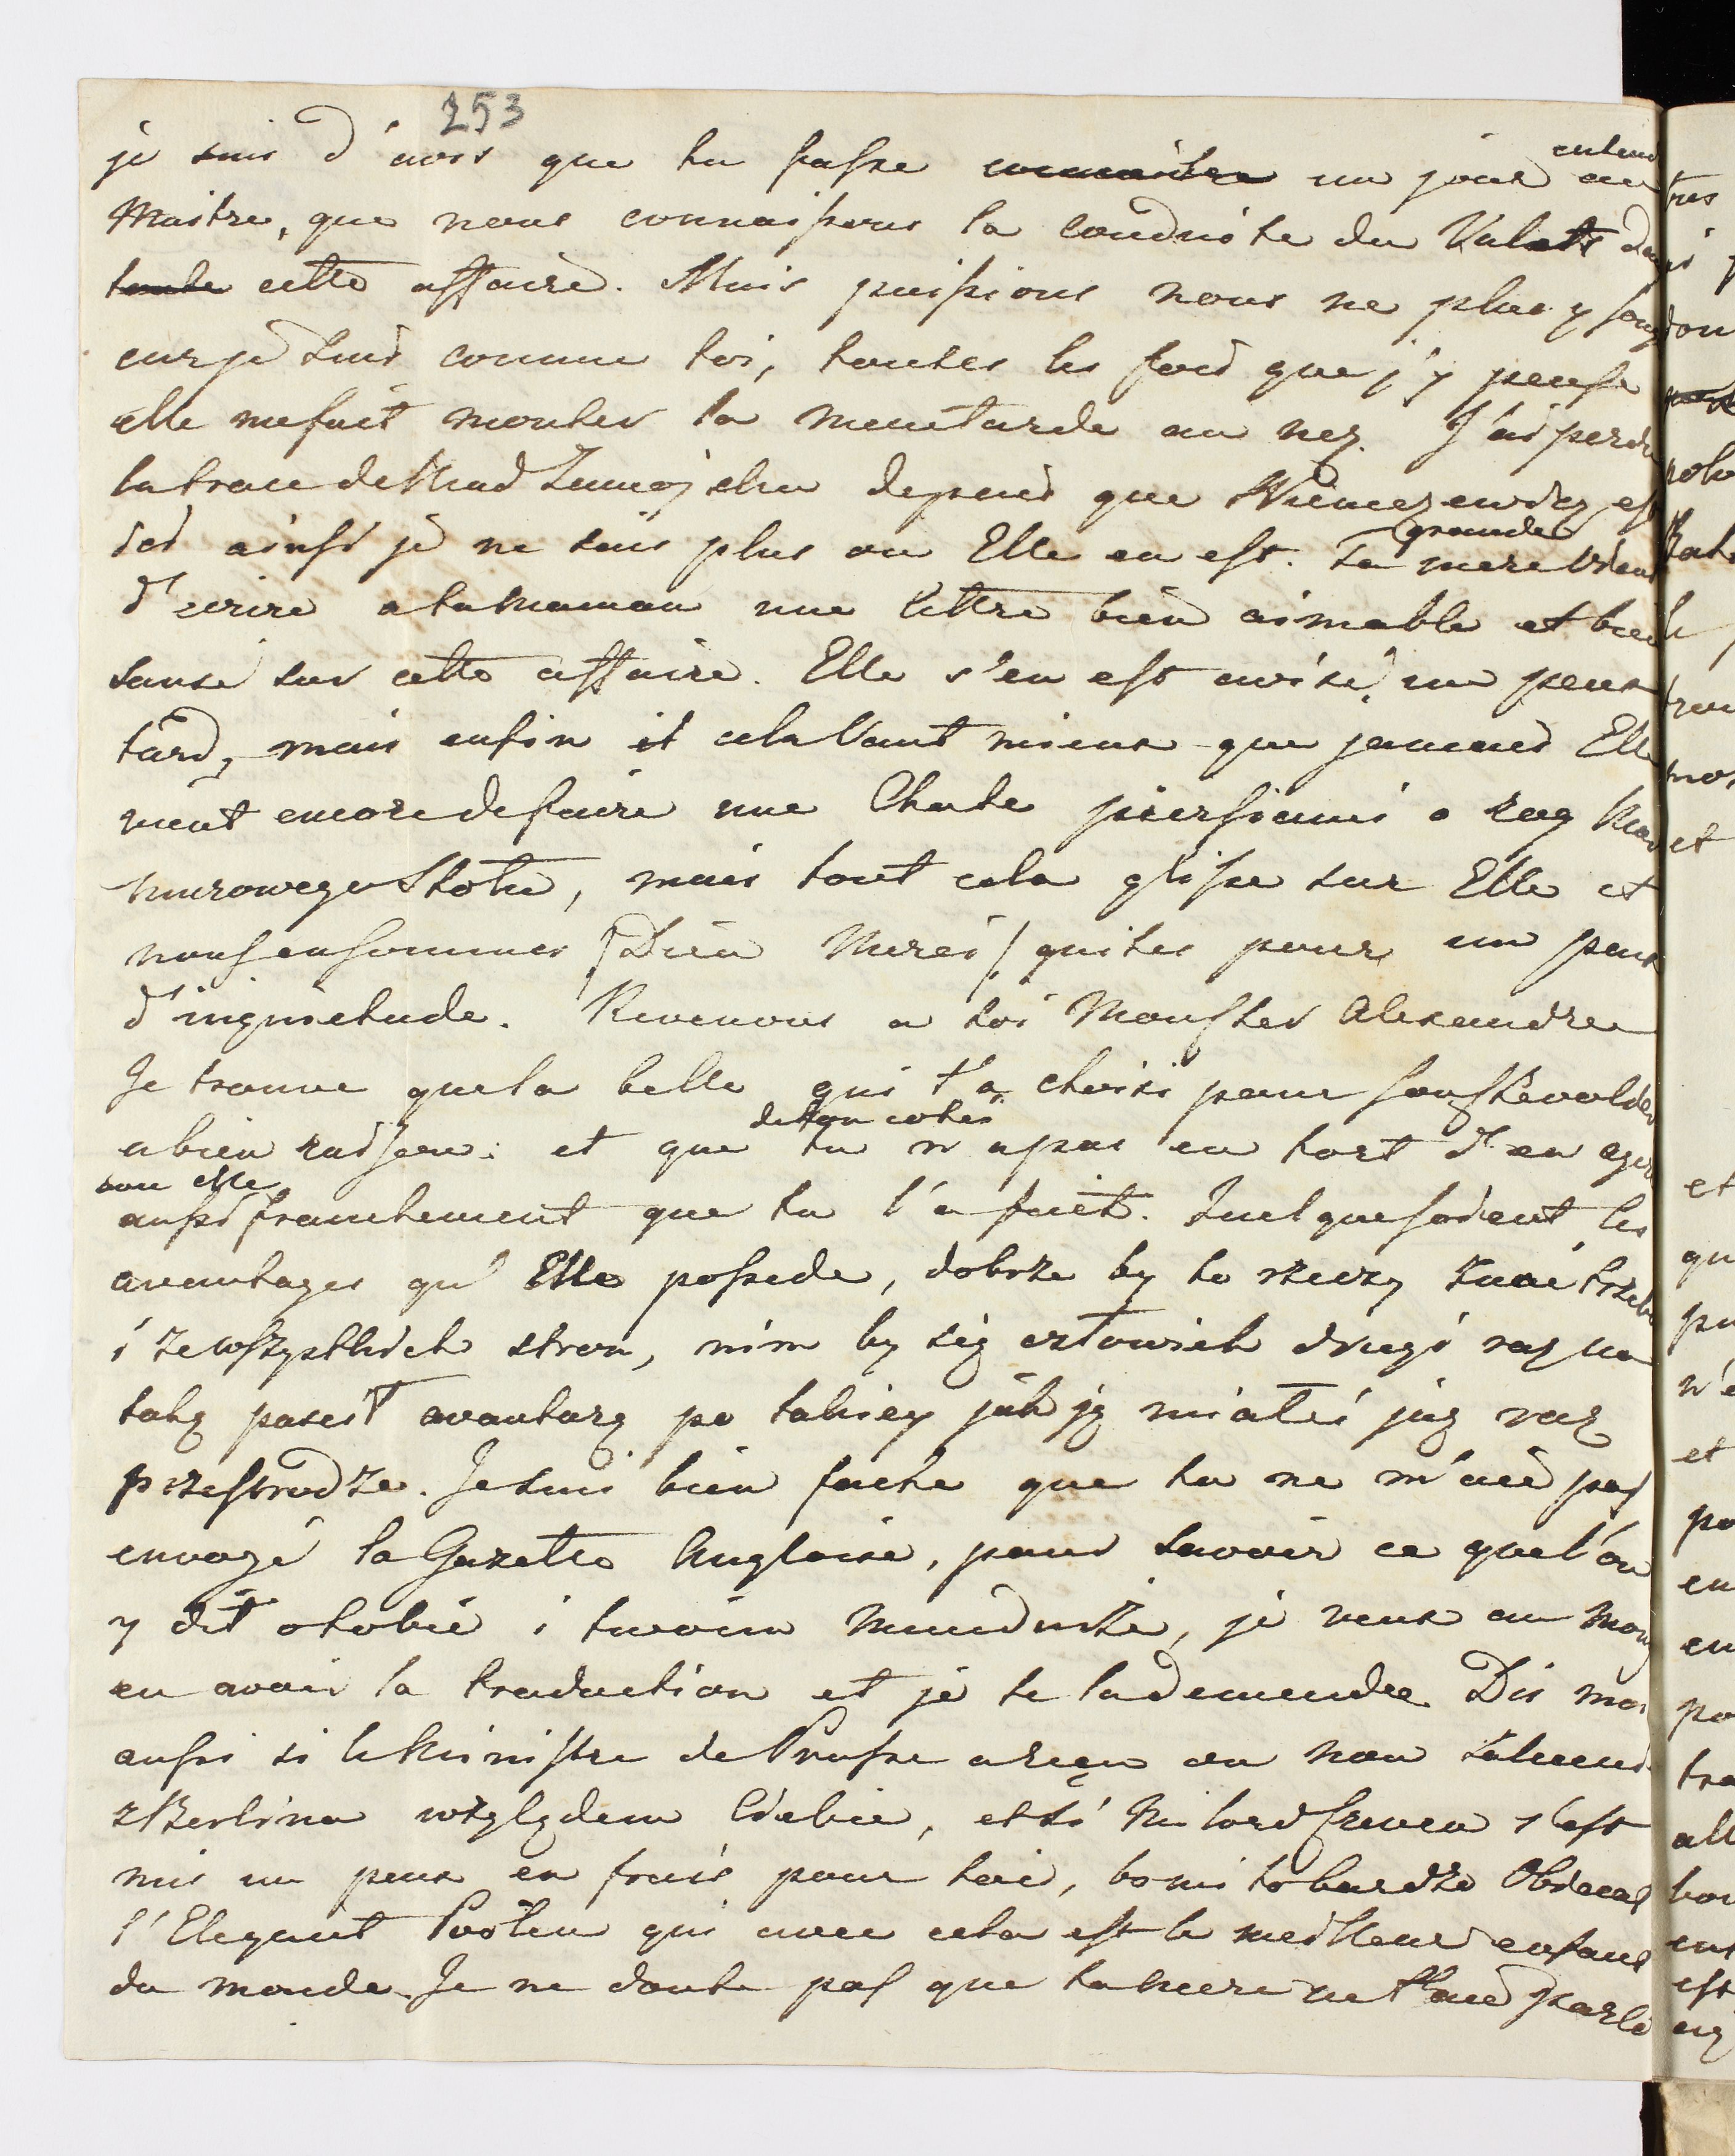 253
je suis d'avis que tu fasse connaitre un jour entend au
Maitre, que nous connaissons la conduite du Valet dans
toute cette affaire. Mais puissions nous ne plus y song
car je suis comme toi, toutes les fois que j'y pense
elle me fait monter la moutarde au nez. J'ai perdu
la trace de Mad Zamojska depuis que est
ici ainsi je ne sais plus ou Elle en est. Ta grande mere vient
d'ecrire a ta Maman une lettre bien aimable et bien
sensé sur cette affaire. Elle s'en est avisé un peux
tard, mais enfin et cela vaut mieux que jamais Elle
vient encore de faire une Chute piersiami o rag
murowego Stotu, mais tout cela glisse sur Elle et
nous en sommes /Dieu Merci/ quites pour un peux
d'inquietude. Revenons a toi Alexandre
Je trouve que la belle qui t'a choisi pour
a bien raison: et que de ton coté tu n'a pas eu tort d'en agir
avec elle
aussi franchement que tu l'a fait. Quelque soient les
avantages qu'Elle possede, dobrze by te rzeczy znać trzeba
i ze wszystkich stron, nim by się człowiek drugi raz na
taką puscił avanturę po takiey jak ją miałeś już raz
przestrodze. Je suis bien faché que tu ne m'aie pas
envoyé la Gazette Anglaise, pour savoir ce que l'on
y dit o tobie i twoim mundurze, je veux au moin
en avoir la traduction et je te la demande. Dis moi
aussi si le Ministre de Prusse a reçu ou non
z Berlina względem Ciebie, et si Milord s'est
mis un peux en frais pour toi, bo mi to bardzo Obiecał
l'Elegant qui avec cela est le meilleur enfant
du monde. Je ne doute pas que ta mere ne t'aie parlé